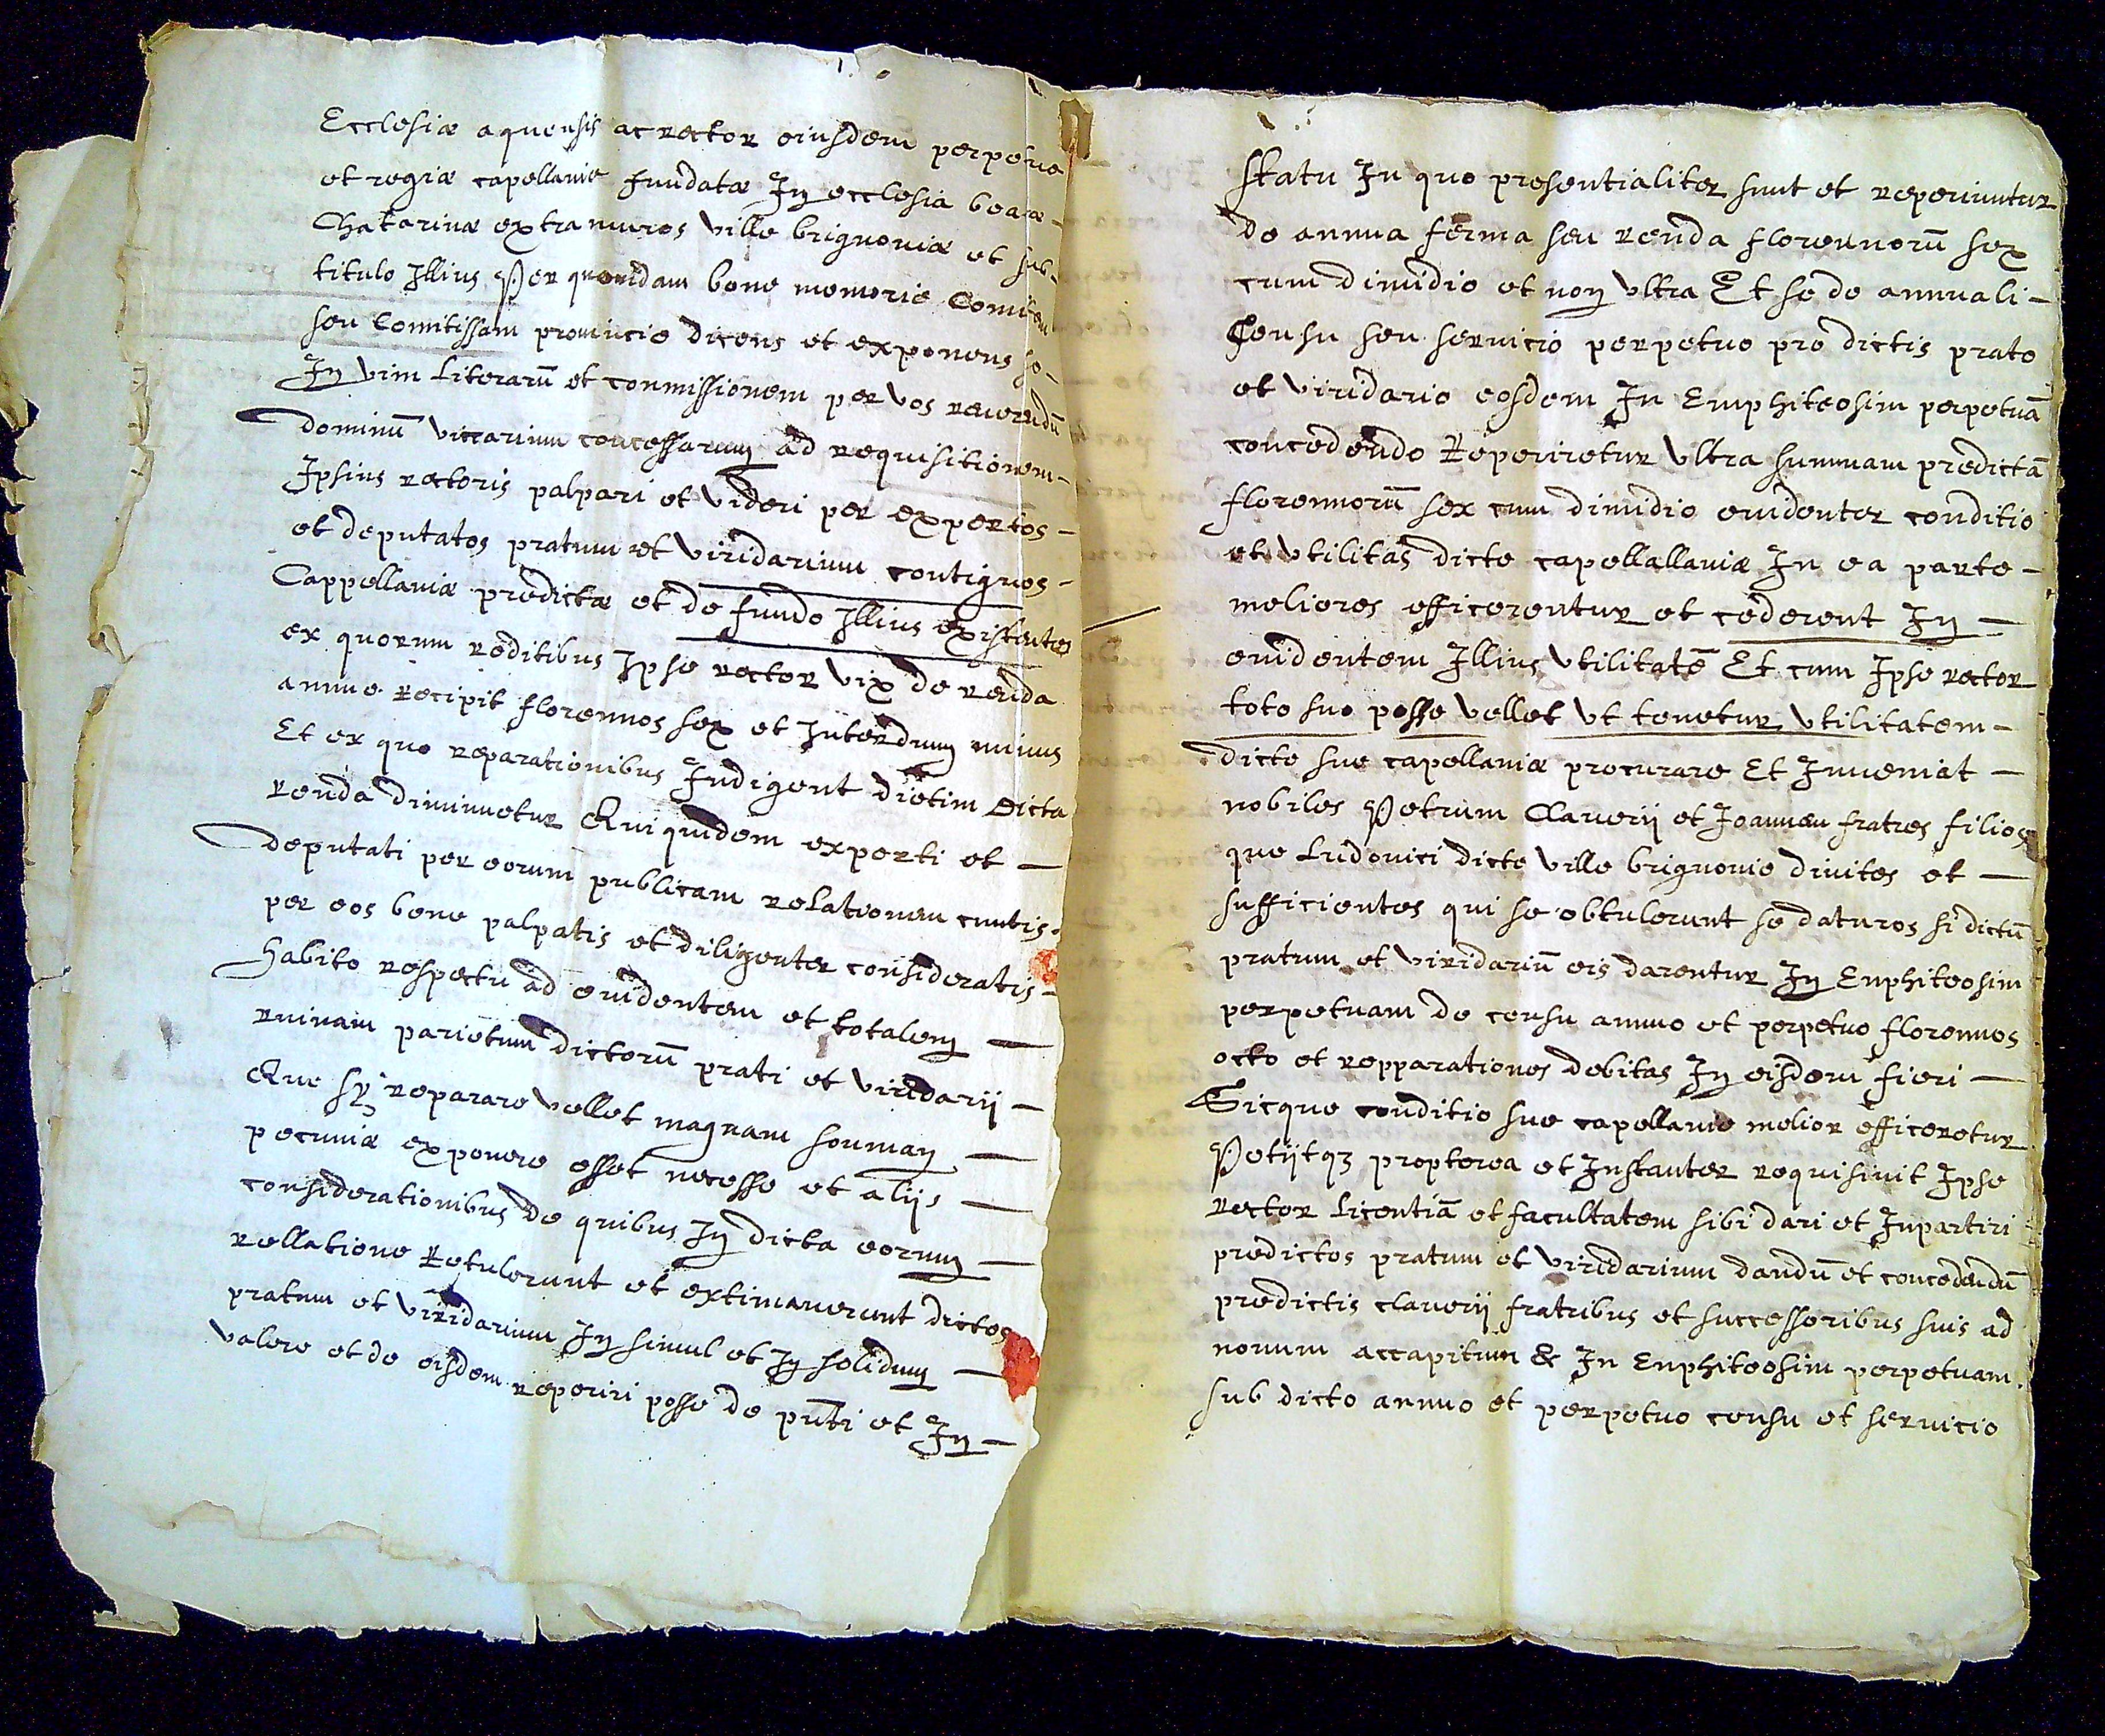 Ecclesiæ aquensis ac rector eiusdem perpetue
et regiæ capellanie fundatæ In ecclesia beatæ
Chatarinæ extra muros ville brignoniæ et sub
titulo Illius Per quondam bone memorie Comitem
seu Comitissam prouincie dicens et exponens se
In vim literarũ et commissionem per vos reuerendũ
dominũ viccarium concessarum ad requisitionem
Ipsius rectoris palpari et videri per expertos
et deputatos pratum et viridarium contiguos
Cappellaniæ predictæ et de fundo Illius existentes
ex quorum reditibus Ipse rector vix de renda
annue Recipit florennos sex et Interdum minus
Et ex quo reparationibus Indigent dietim dicta
renda diminuetur Qui quidem experti et
deputati per eorum publicam relationem cuntis
per eos bene palpatis et diligenter consideratis
habito respectu ad euidentem et totalem
ruinam parietum dictorũ prati et viridarij
Que sy reparare vellet magnam soumam
pecuniæ exponere esset necesse et alijs
considerationibus de quibus In dicta eorum
rellatione Retulerunt et extimauerunt dictos
pratum et viridarium In simul et In solidum
valere et de eisdem reperiri posse de pñti et In
statu In quo presentialiter sunt et reperiuntur
de annua ferma seu renda florennorũ sex
cum dimidio et non vltra Et se de annuali
Censu seu seruicio perpetuo pro dictis prato
et viridario eosdem In Emphiteosim perpetuã
concedendo Reperiretur vltra summam predictã
florennorũ sex cum dimidio euidenter conditio
et vtilitas dicte capellallaniæ In ea parte
meliores efficerentur et cederent In
euidentem Illius vtilitatẽ Et cum Ipse rector
toto suo posse vellet vt tenetur vtilitatem
dicte sue capellaniæ procurare Et Inueniat
nobiles Petrum Clauerij et Joannem fratres filios
que Ludouici dicte ville brignonie diuites et
sufficientes qui se obtulerunt se daturos si dictũ
pratum et viridariũ eis darentur In Enphiteosim
perpetuam de censu annuo et perpetuo florennos
octo et repparationes debitas In eisdem fieri
Sicque conditio sue capellanie melior efficeretur
Petijtqз propterea et Instanter requisiuit Ipse
Rector licentiã et facultatem sibi dari et Inpartiri
predictos pratum et viridarium dandũ et concedendũ
predictis clauerij fratribus et successoribus suis ad
nouum accapitum & In Enphiteosim perpetuam
sub dicto annuo et perpetuo censu et seruicio